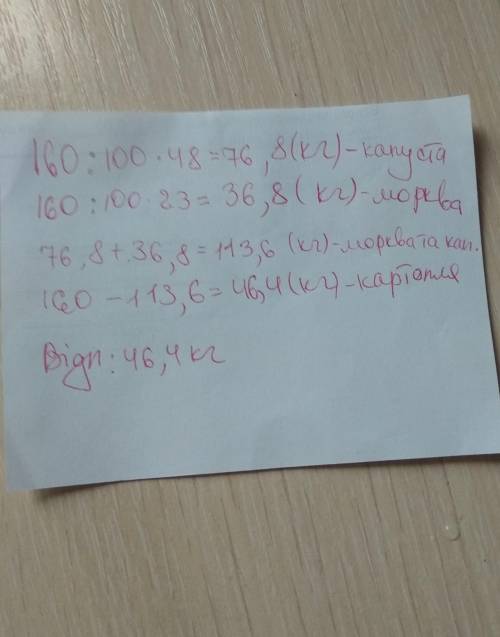 160:100·48=76,8(кг)-капуста
160:100·23=36,8(кг)-морква
76,8+36,8=113,6 (кг)-морква та кап.
160-113,6=46,4(кг)-картопля
Відп:46,4кг